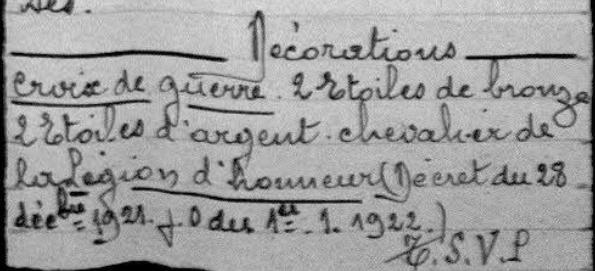 Décorations
croix de guerre. 2 Etoiles de bronze
2 Etoiles d'argent. chevalier de
la Légion d'honneur (Décret du 28
déc bre 1921. J.O du 1er. 1. 1922.)
T.S.V.P